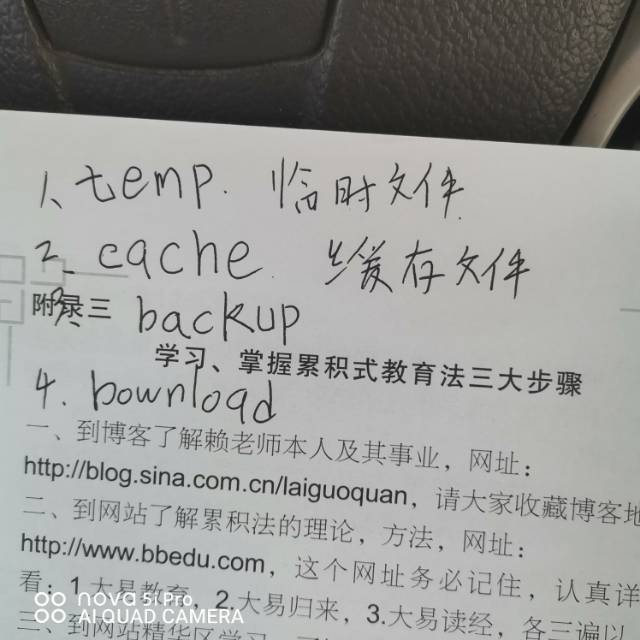 1、temp. 临时文件
2、cache. 缓存文件
附录三 3、backup
学习、掌握累积式教育法三大步骤
4. bownload
一、到博客了解赖老师本人及其事业，网址：
http://blog.sina.com.cn/laiguoquan，请大家收藏博客地
二、到网站了解累积法的理论，方法，网址：
http://www.bbedu.com，这个网址务必记住，认真详
看：1.大易教育，2.大易归来，3.大易读经，各三遍以
三、到网站精华区学习
nova 5i Pro
AI QUAD CAMERA